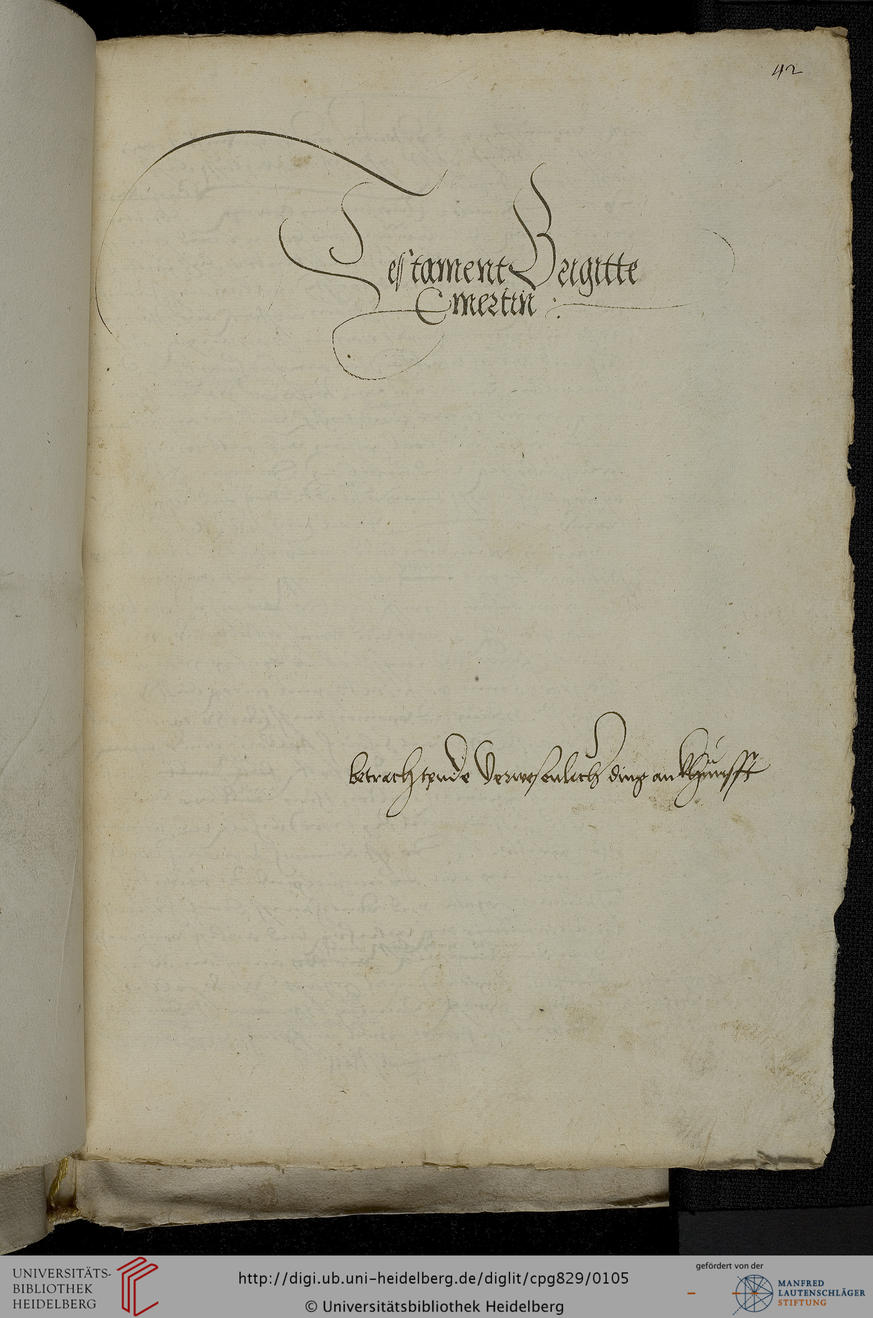 42
Testament Brigitte
Emertin :
betrachtende Verwesenlich ding an
UNIVERSITÄTS-
BIBLIOTHEK
HEIDELBERG
http://digi.ub.uni-heidelberg.de/diglit/cpg829/0105
© Universitätsbibliothek Heidelberg
gefördert von der
MANFRED
LAUTENSCHLÄGER
STIFTUNG